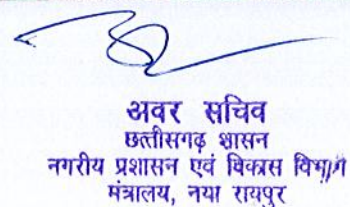 अवर सचिव
छत्तीसगढ़ शासन
नगरीय प्रशासन एवं विकास विभाग
मंत्रालय, नया रायपुर